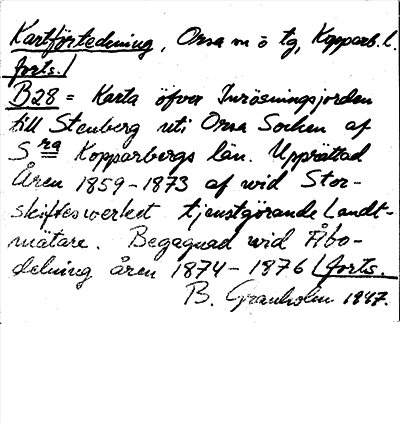 Kartförteckning, Orsa m o tg, Kopparb. l.
forts./
B28 = Karta öfver Inrösningsjorden
till Stenberg uti Orsa Socken af
Sra Kopparbergs län. Upprättad
Åren 1859-1873 af wid Stor-
skifteswerket tjenstgörande Landt-
mätare. Begagnad wid Åbo-
delning åren 1874-1876 /forts.
B. Granholm 1947.